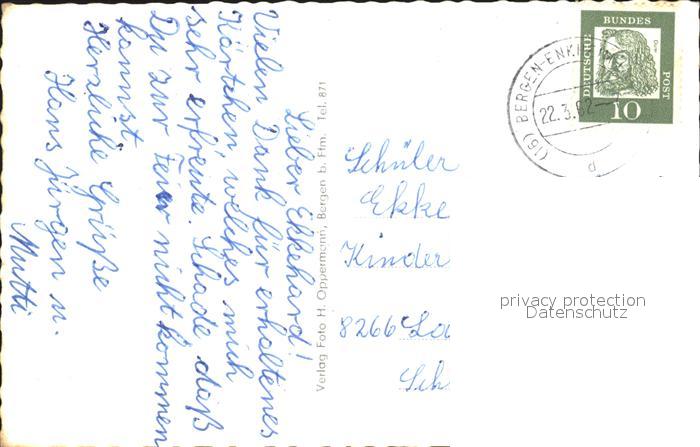 Lieber Ekkehard!
Vielen Dank für erhaltenes
Kärtchen, welches mich
sehr erfreute. Schade, daß
Du zur Feier nicht kommen
kannst.
Herzliche Grüße
Hans Jürgen u.
Mutti
Verlag Foto H. Oppermann, Bergen b. Ffm. Tel. 871
DEUTSCHE
BUNDES
POST
10
(16) BERGEN-ENK
22.3.62
d
Schüler
Ekke
Kinder
8266
Sch
privacy protection
Datenschutz